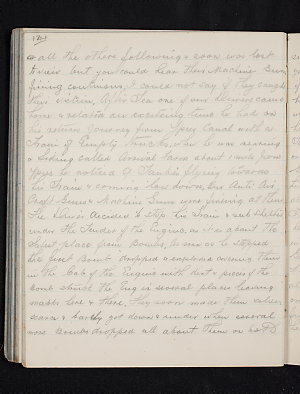 121
all the others following & soon was lost
to view but you could hear their Machine Guns
firing continuous, I could not say if they caught
their victim, After Tea one of our drivers came
home & related an exciting time he had on
his return Journey from Ypres Canal with a
Train of Empty Trucks, when he was nearing
a Siding called about 1 mile from
Ypres he noticed 9 Taubes flying towards
his Train & coming low down, our Anti Air
Craft Guns & Machine Guns were firing at them
The Driver decided to stop his Train & get shelter
under the Tender of the Engine, as it is about the
safest place from Bombs, As soon as he stopped
the first Bomb dropped & exploded covering them
in the Cab of the Engine with dirt & pieces of the
bomb struck the Eng in several places leaving
marks here & there, They soon made themselves
scarce & hardly got down & under when several
more Bombs dropped all about them on his